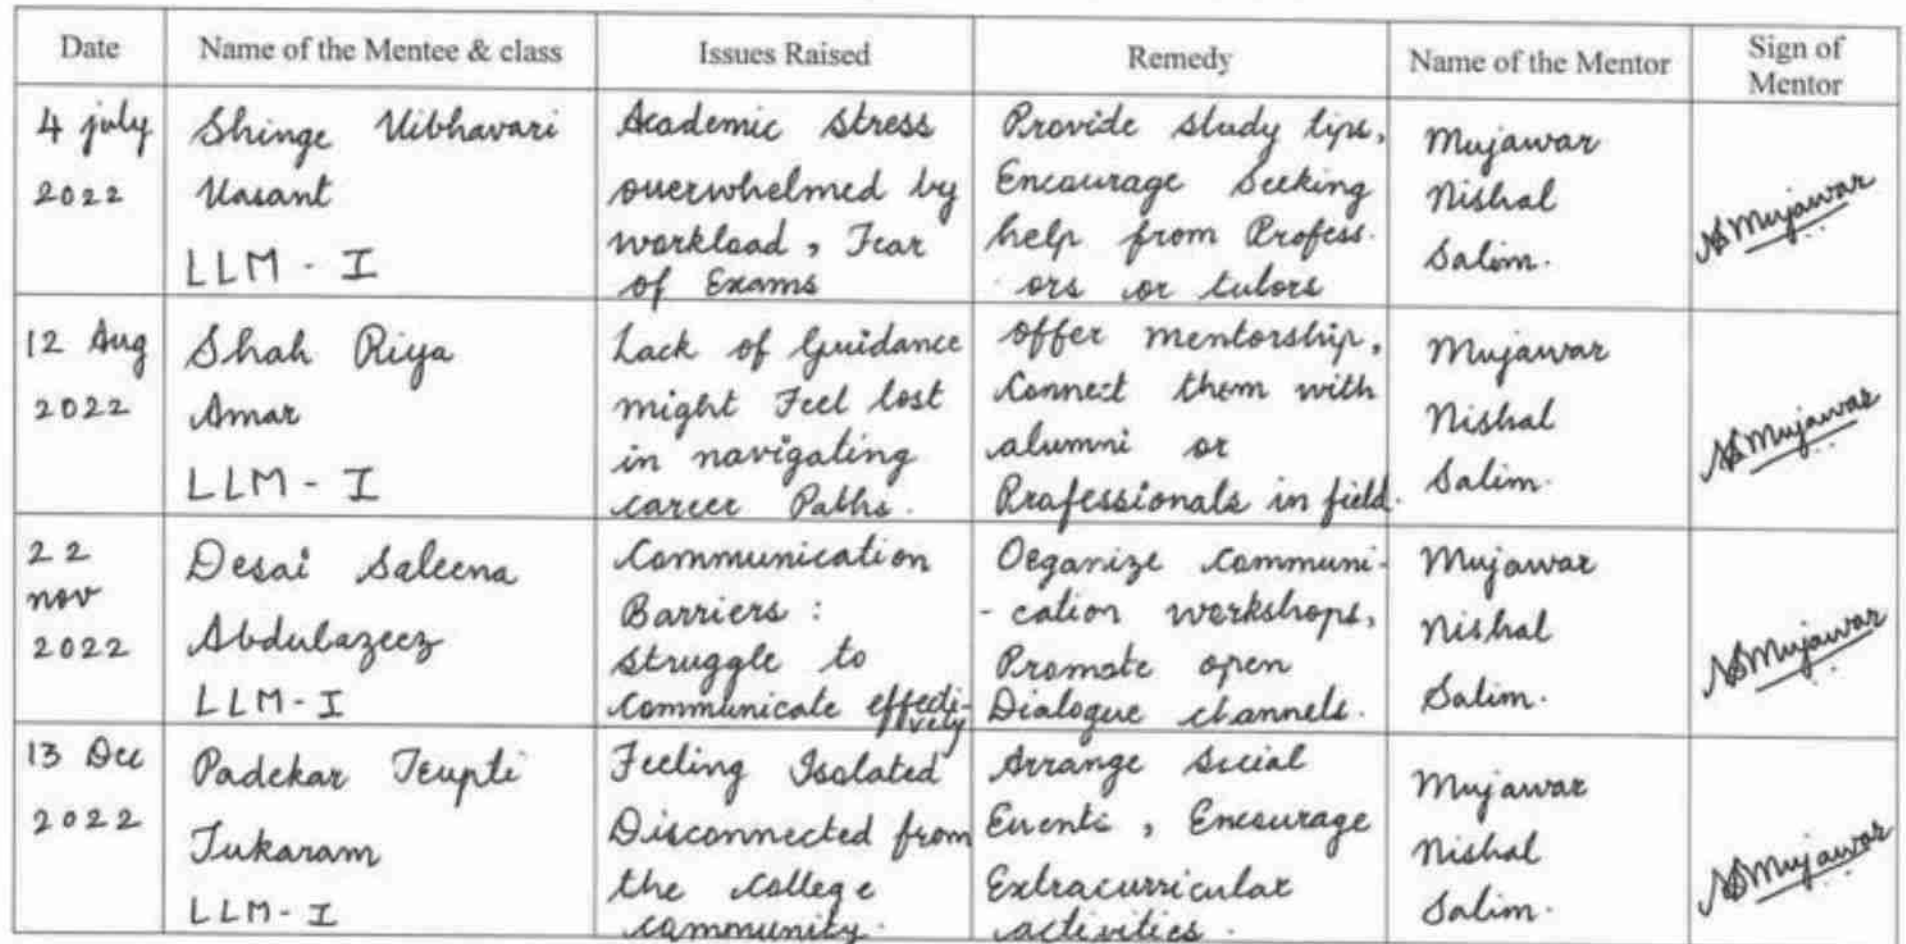 Date
Name of the Mentee & class
Issues Raised
Remedy
Name of the Mentor
Sign of
Mentor
4 july
2022
Shinge Vibhavari
Vasant
LLM - I
Academic stress
overwhelmed by
workload, Fear
of Exams
Provide study tips,
Encourage Seeking
help from Profess-
ors or tutors
Mujawar
Nishal
Salim.
NSMujawar
12 Aug
2022
Shah Riya
Amar
LLM - I
Lack of Guidance
might Feel lost
in navigating
career Paths.
offer mentorship,
Connect them with
alumni or
Professionals in field.
Mujawar
Nishal
Salim.
NSMujawar
22
nov
2022
Desai Saleena
Abdulazeez
LLM - I
Communication
Barriers :
struggle to
Communicate effecti-
vely
Organize communi-
-cation workshops,
Promote open
Dialogue channels.
Mujawar
Nishal
Salim.
NSMujawar
13 Dec
2022
Padekar Trupti
Tukaram
LLM - I
Feeling Isolated
Disconnected from
the college
community.
Arrange social
Events, Encourage
Extracurricular
activities.
Mujawar
Nishal
Salim.
NSMujawar